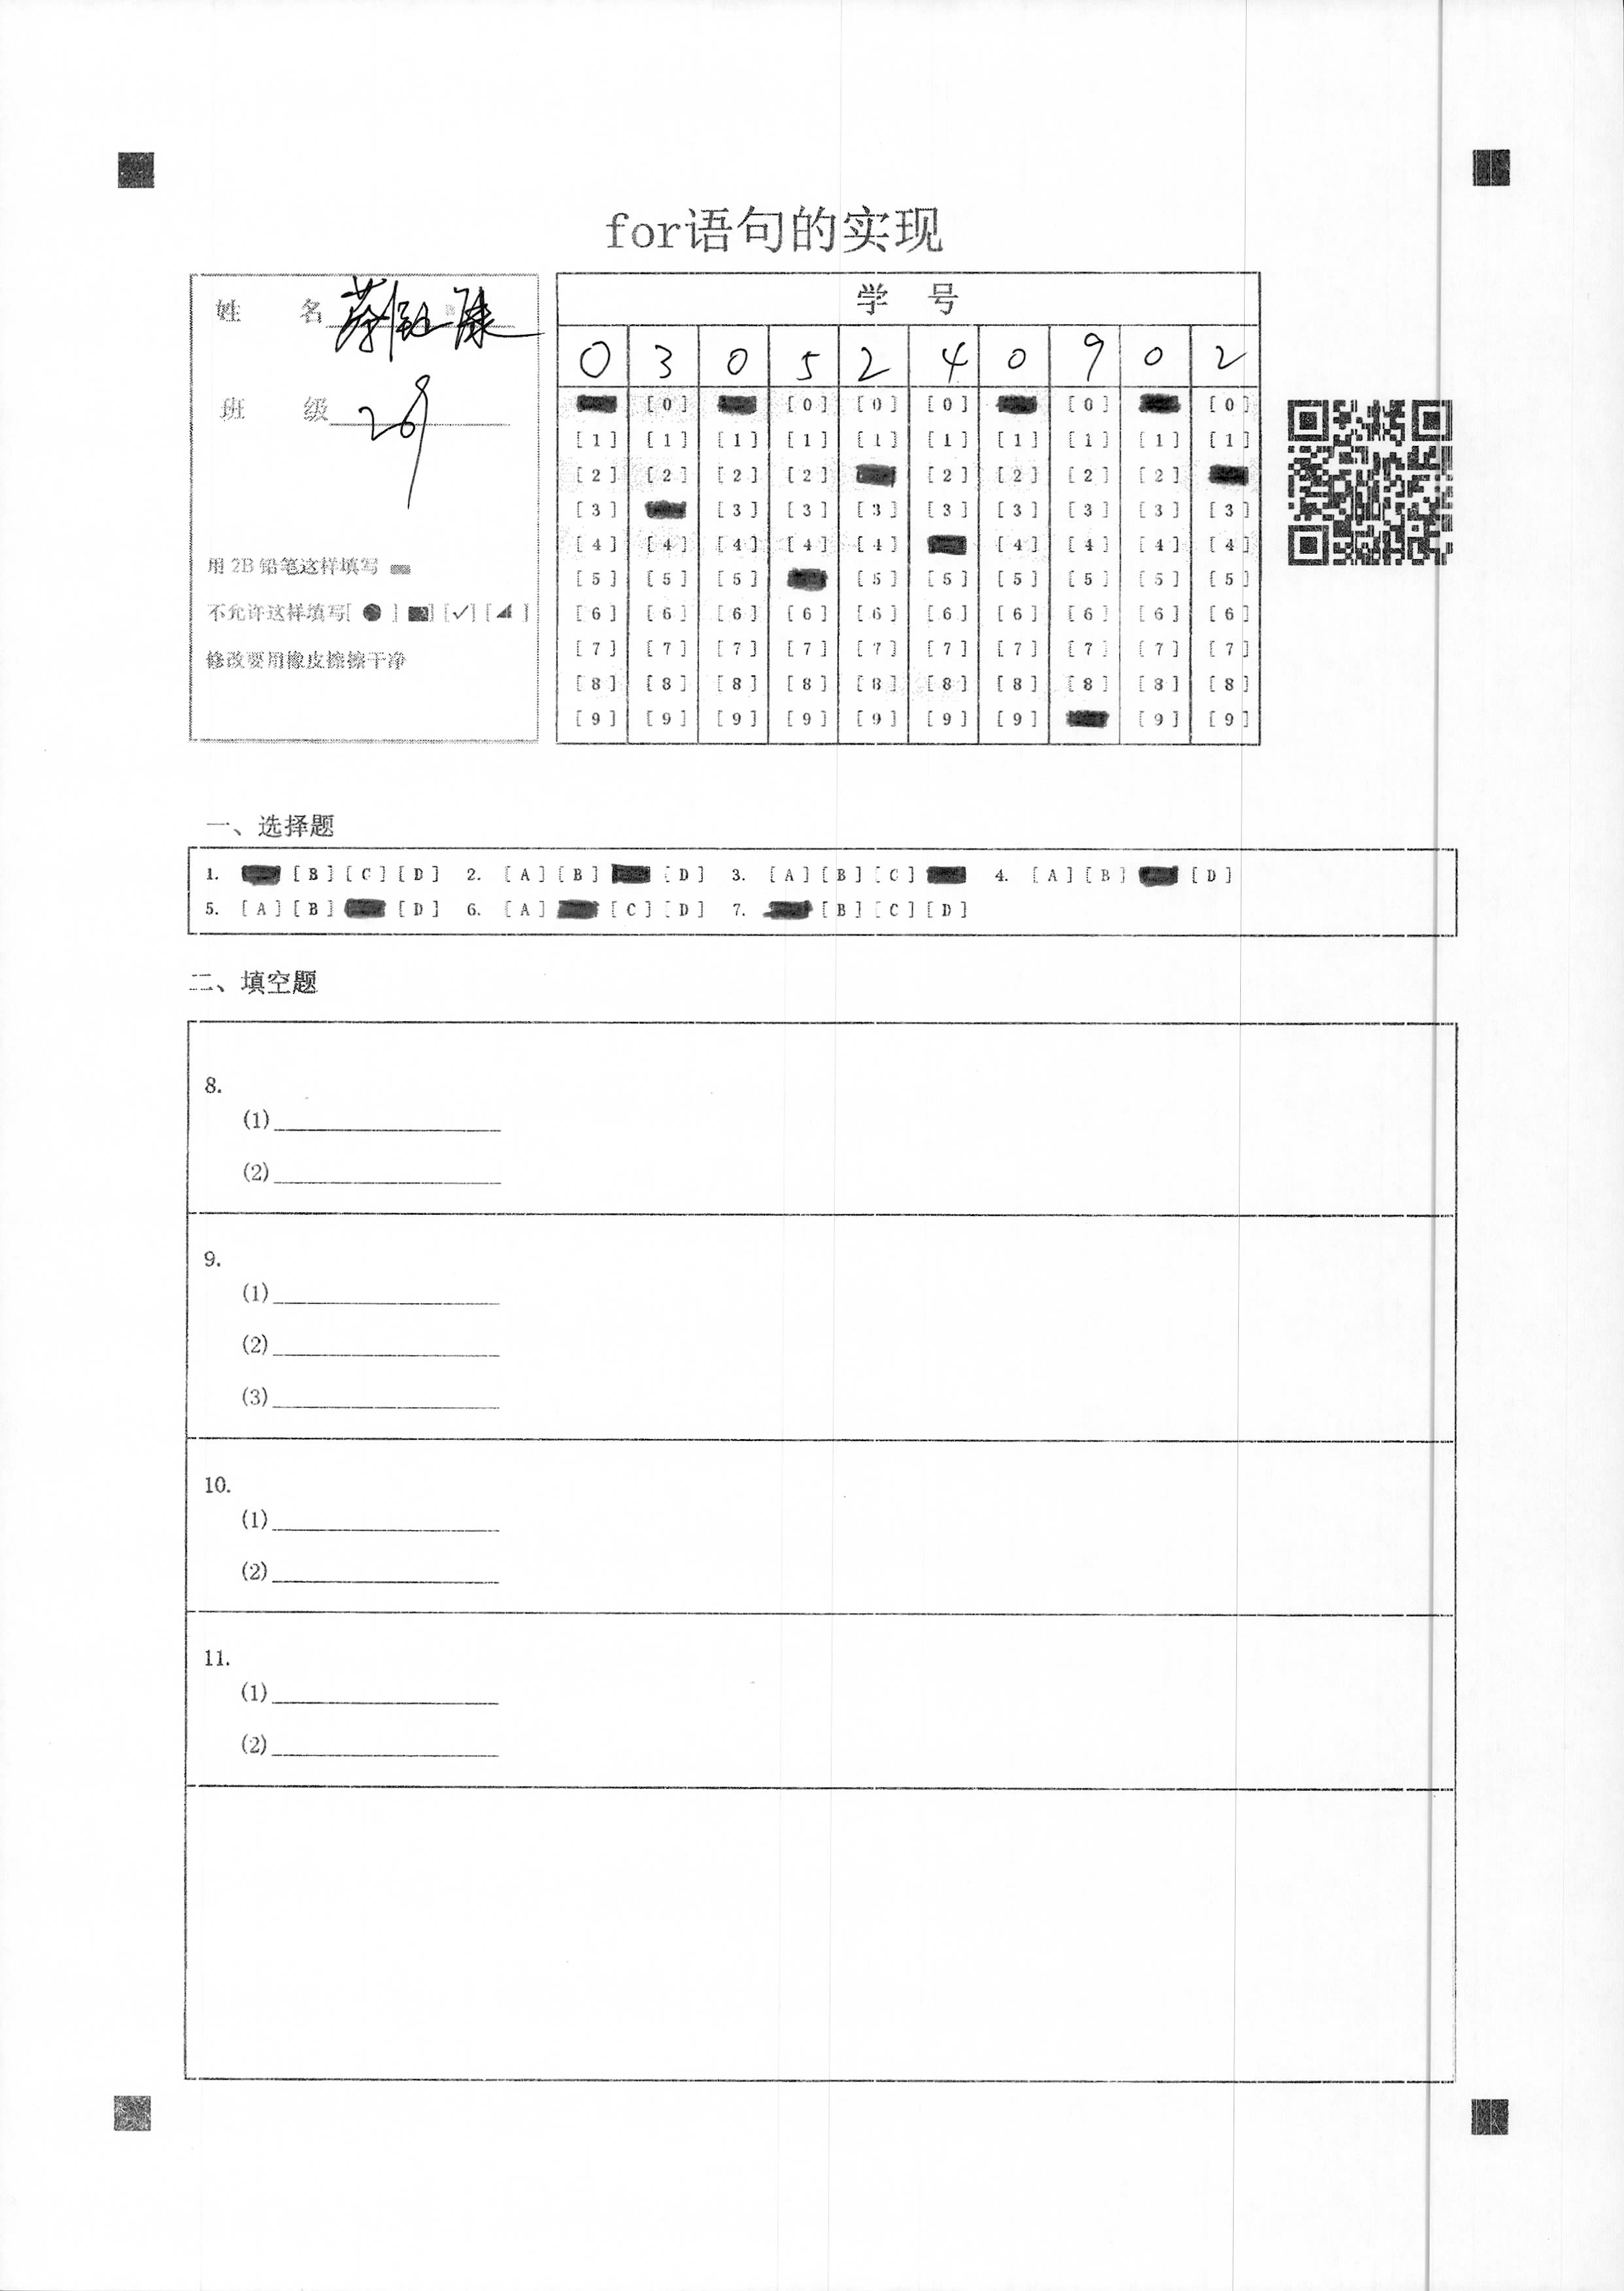 for语句的实现
姓 名 康
班 级
用 2B 铅笔这样填写
不允许这样填写[ ● ] [■] [✓] [◢ ]
修改要用橡皮擦擦干净
学 号
0 3 0 5 2 4 0 9 0 2
[0] [0] [0] [0] [0] [0]
[1] [1] [1] [1] [1] [1] [1] [1] [1] [1]
[2] [2] [2] [2] [2] [2] [2] [2]
[3] [3] [3] [3] [3] [3] [3] [3] [3]
[4] [4] [4] [4] [4] [4] [4] [4] [4]
[5] [5] [5] [5] [5] [5] [5] [5] [5]
[6] [6] [6] [6] [6] [6] [6] [6] [6] [6]
[7] [7] [7] [7] [7] [7] [7] [7] [7] [7]
[8] [8] [8] [8] [8] [8] [8] [8] [8] [8]
[9] [9] [9] [9] [9] [9] [9] [9] [9]
一、选择题
1. [B] [C] [D] 2. [A] [B] [D] 3. [A] [B] [C] 4. [A] [B] [D]
5. [A] [B] [D] 6. [A] [C] [D] 7. [B] [C] [D]
二、填空题
8.
(1)
(2)
9.
(1)
(2)
(3)
10.
(1)
(2)
11.
(1)
(2)